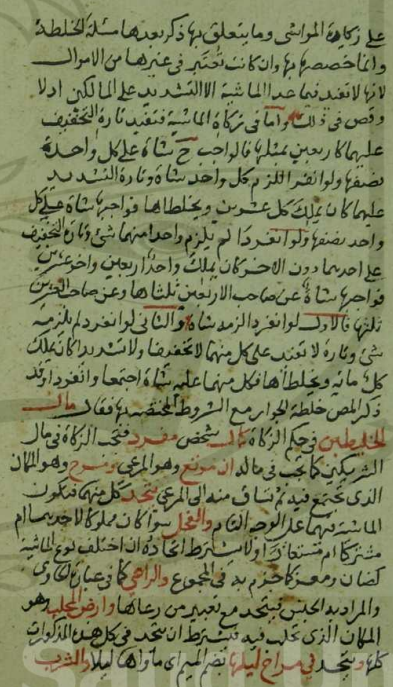 على زكاة المواشي وما يتعلق بها ذكر بعدها مسئلة الخلطة
وانما خصصها بها وان كانت تعتبر في غيرها من الاموال
لانها لا تفيد فيما عدا الماشية الا التشديد على المالكين اذ لا
وقص في ذلك واما في زكاة الماشية فتفيد تارة التخفيف
عليهما كاربعين بمثلها فالواجب ح شاة على كل واحد
نصفها ولو انفرد الزم كل واحد شاة وتارة التشديد
عليهما كان يملك كل عشرين ويخلطاها فواجبها شاة على كل
واحد نصفها ولو انفردا لم يلزم واحدا منهما شئ وتارة التخفيف
على احدهما دون الاخر كان يملك واحدا اربعين واخر عشرين
فواجبها شاة عن صاحب الاربعين ثلثاها وعن صاحب العشرين
ثلثها فالاول لو انفرد الزمه شاة والثاني لو انفرد لم يلزمه
شئ وتارة لا تفيد على كل منهما لا تخفيفا ولا تشديدا كان يملك
كل مائة ويخلطاها فكل منهما عليه شاة اجتمعا وانفردا وقد
ذكر المص خلطة الجوار مع الشروط المختصة بها فقال مال
الخليطين في حكم الزكاة كمال شخص مفرد فتجب الزكاة في مال
الشريكين كما تجب في ماله ان مرتع وهو المرعى ومسرح وهو المكان
الذي تجتمع فيه ثم تساق منه الى المرعى يتحد كل منهما فتكون
الماشية فيهما على الوجه التام والفحل سوا كان مملوكا لاحدهما ام
مشتركا ام مستعارا ولا يشترط اتحاده ان اختلف نوع الماشية
كضان ومعز كما جزم به في المجموع والراعي كما في عبارة الحاوى
والمراد به الجنس فيتحد مع تعبير من رعاها وارض المحلب وهو
المكان الذي تحلب فيه فيشترط ان يتحد في كل هذه المذكورات
كلها ويتحد في مراح ليلها بضم الميم اي ماواها ليلا والشرب